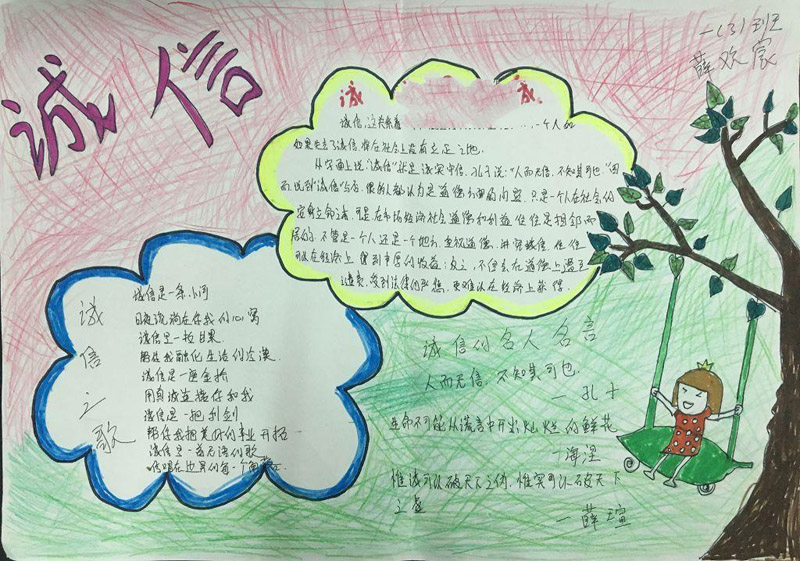 诚信
一(3)班
薛欢宸
诚 诚
诚信,这关系着 一个人的
如果失去了诚信,你在社会上没有立足之地。
从字面上说,"诚信"就是诚实守信。孔子说:"人而无信,不知其可也。"因
而说到"诚信"二字,很多人都认为是道德方面的内容,只是一个人在社会的
安身立命之,可是在市场经济社会道德和利益往往是相邻而
居的。不管是一个人还是一个地方,重视道德、讲究诚信,他
可以在经济上得到丰厚的收益;反之,不但会在道德上遇到
谴责,受到法律的严惩,更难以在经济上获得
诚信之歌
诚信是一条小河
日夜流淌在你我的心窝
诚信是一粒甘果
帮你我融化生活的苦涩
诚信是一座金桥
用真诚连接你和我
诚信是一把利剑
帮你我把美好的事业开拓
诚信是一首无语的歌
唱响在世界的每一个角落
诚信的名人名言
人而无信,不知其可也
—孔子
生命不可能从谎言中开出灿烂的鲜花
—海涅
惟诚可以破天下之伪,惟实可以破天下
之虚
—薛瑄